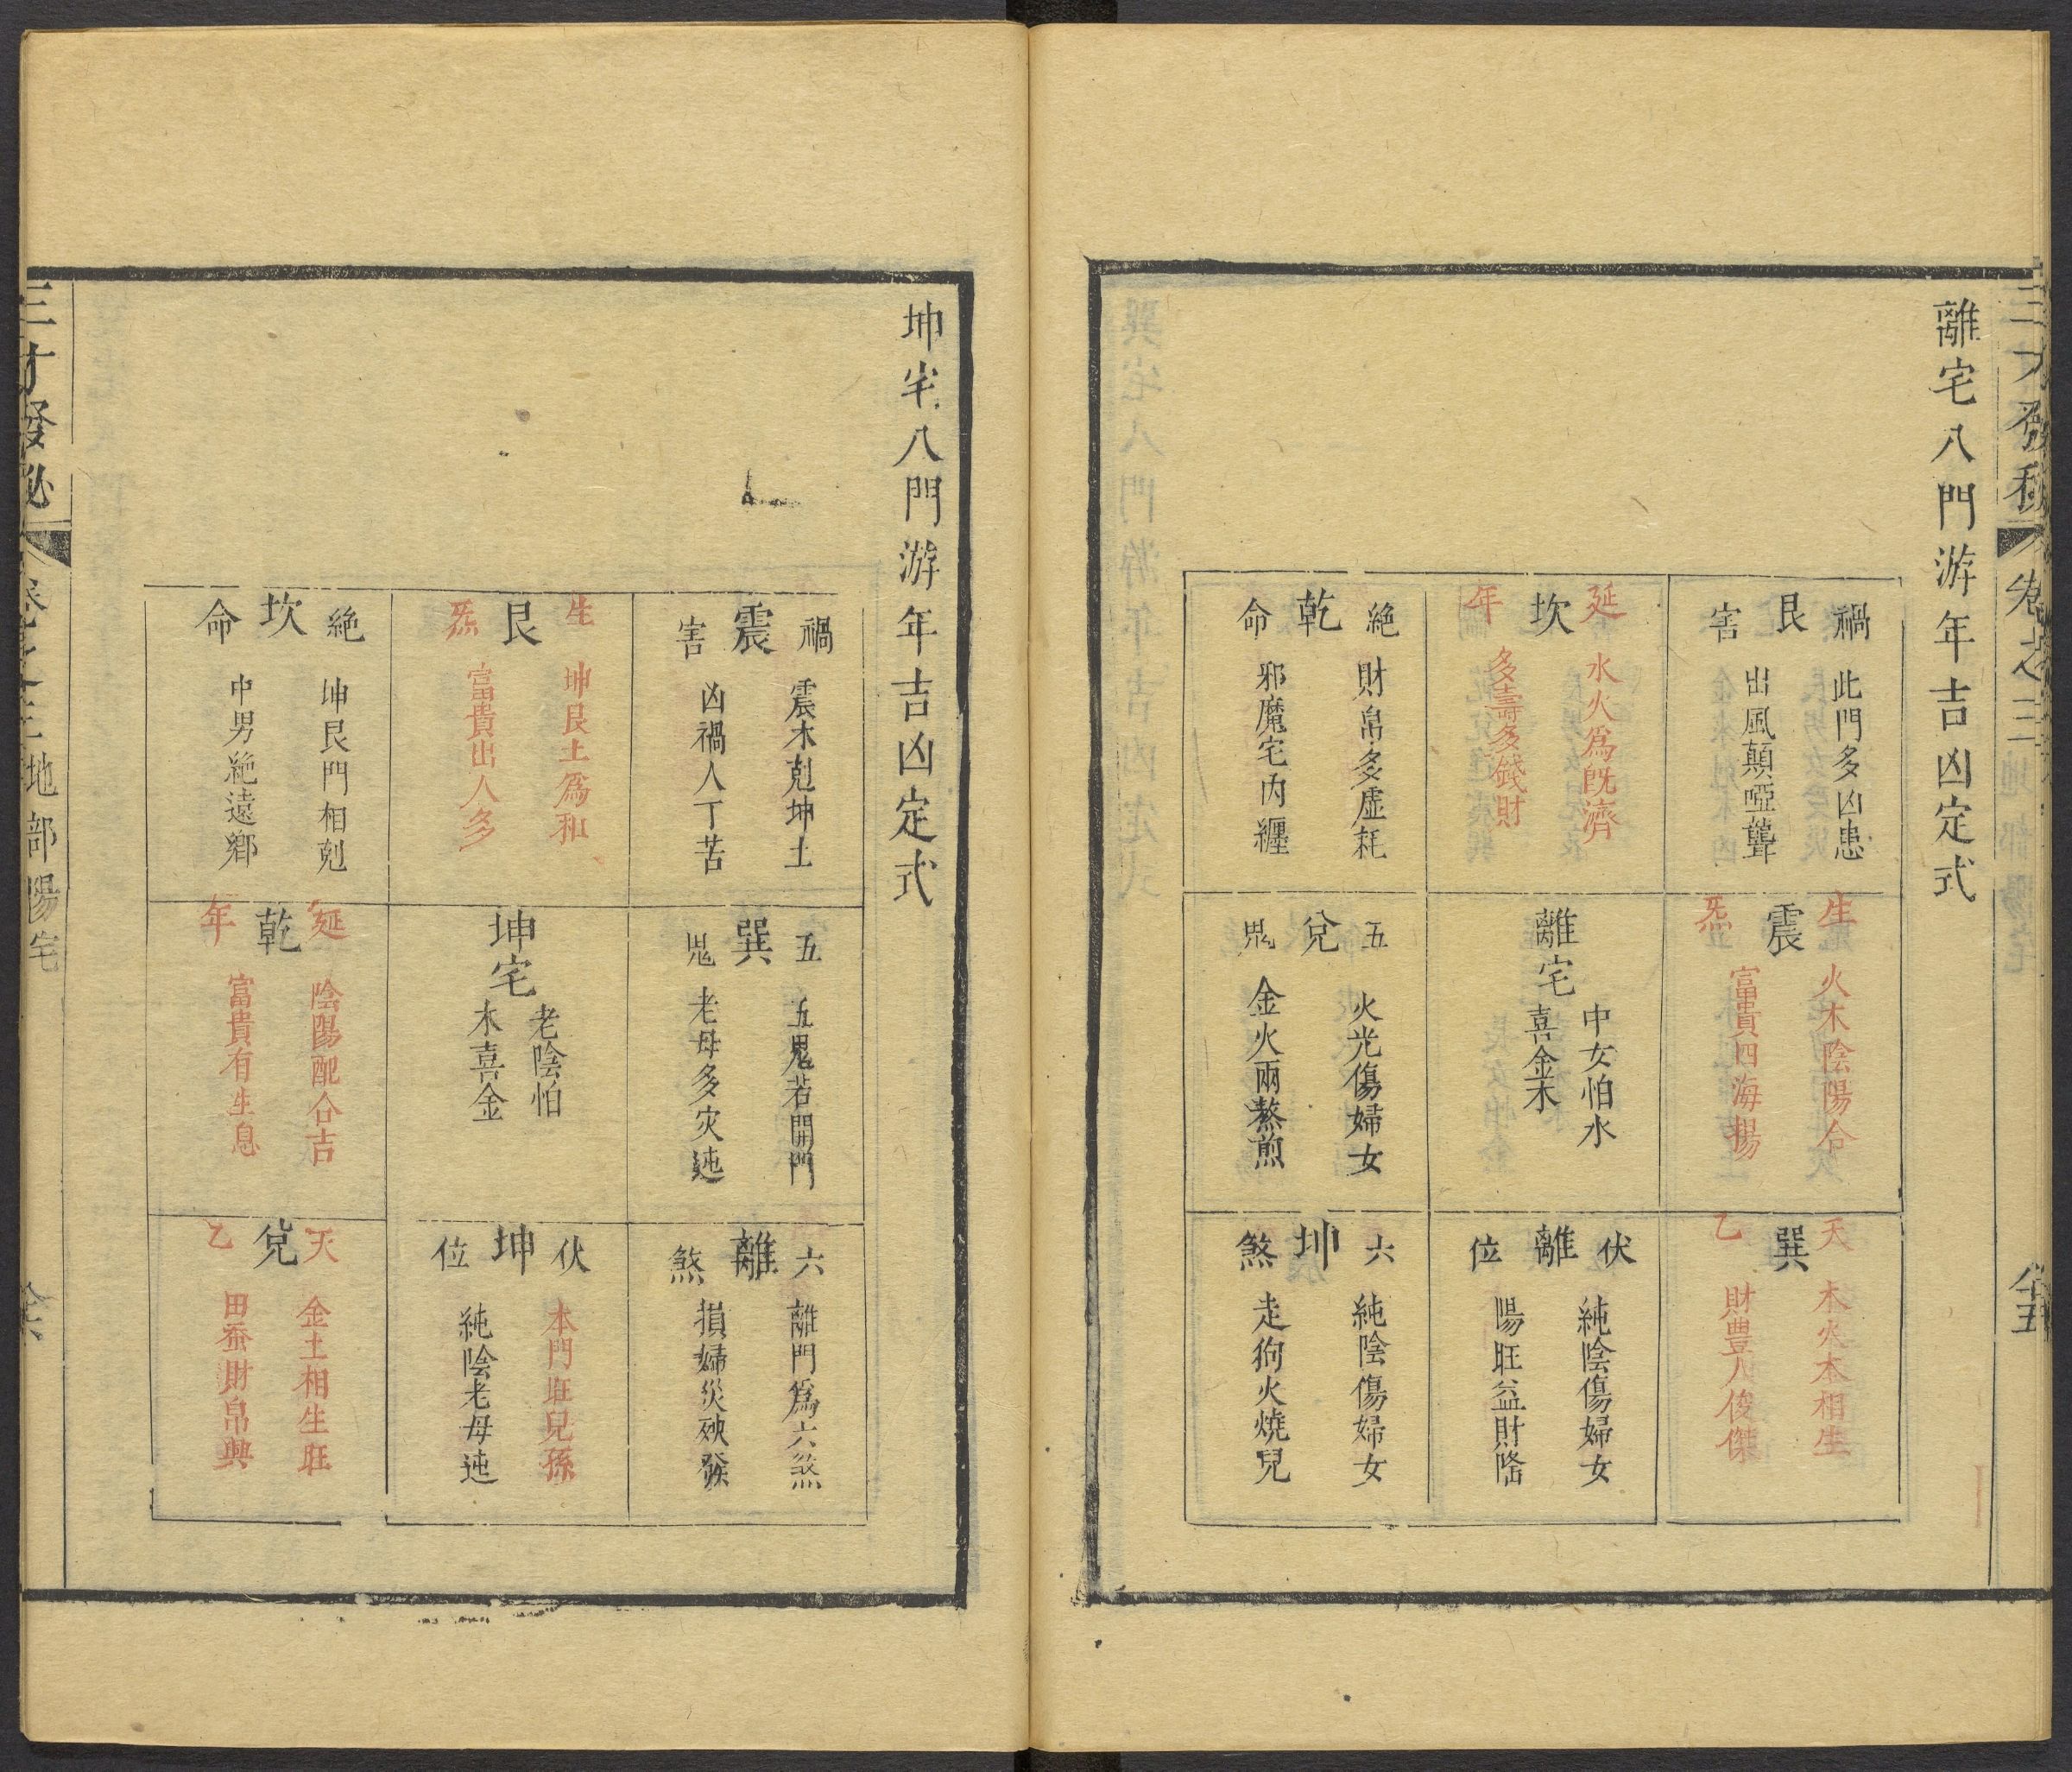 三才發秘 卷之三 地部陽宅 全五
離宅八門游年吉凶定式
禍艮害
此門多凶患
出風顛啞聾
延坎年
水火爲旣濟
多壽多錢財
絶乾命
財帛多虛耗
邪魔宅内纒
生震炁
火木陰陽合
富貴四海揚
離宅
中女怕水
喜金木
五兌鬼
火光傷婦女
金火兩熬煎
天巽乙
木火本相生
財豊人俊傑
伏離位
純陰傷婦女
陽旺益財隆
六坤煞
純陰傷婦女
走狗火燒兒
坤宅八門游年吉凶定式
禍震害
震木剋坤土
凶禍人丁苦
生艮炁
坤艮土爲和
富貴出人多
絶坎命
坤艮門相剋
中男絶遠鄉
五巽鬼
五鬼若開門
老母多灾迍
坤宅
老陰怕
木喜金
延乾年
陰陽配合吉
富貴有生息
六離煞
離門爲六煞
損婦災殃發
伏坤位
本門旺兒孫
純陰老母迍
天兌乙
金土相生旺
田蚕財帛興
三才發秘 卷之三 地部陽宅